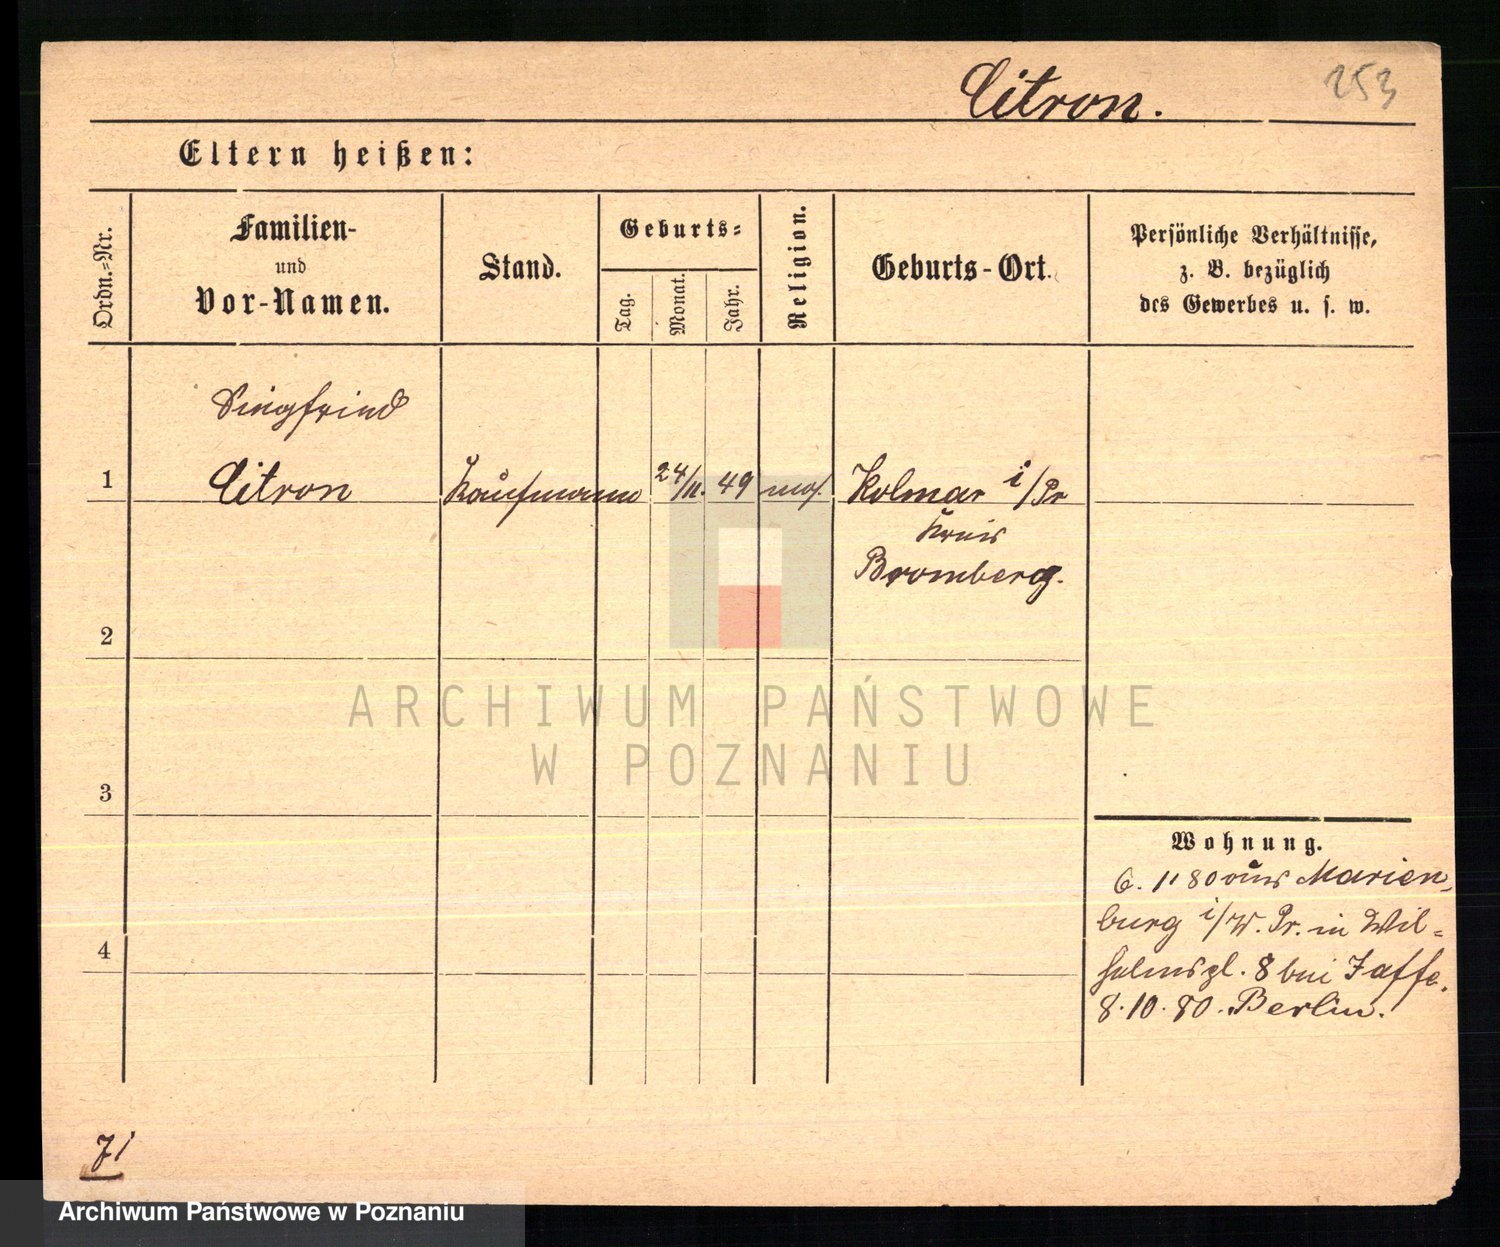 Citron. 253
Eltern heißen:
Ordn.-Nr.
Familien-
und
Vor-Namen.
Stand.
Geburts-
Tag.
Monat.
Jahr.
Religion.
Geburts-Ort.
Persönliche Verhältnisse,
z. B. bezüglich
des Gewerbes u. s. w.
Siegfried
1 Citron Kaufmann 24/11. 49 mos. Kolmar i/Pr
Kreis
Bromberg.
2
3
4
Wohnung.
6. 1. 80 aus Marien-
burg i/W. Pr. in Wil-
helmspl. 8 bei Jaffe.
8. 10. 80. Berlin.
71
ARCHIWUM PAŃSTWOWE
W POZNANIU
Archiwum Państwowe w Poznaniu